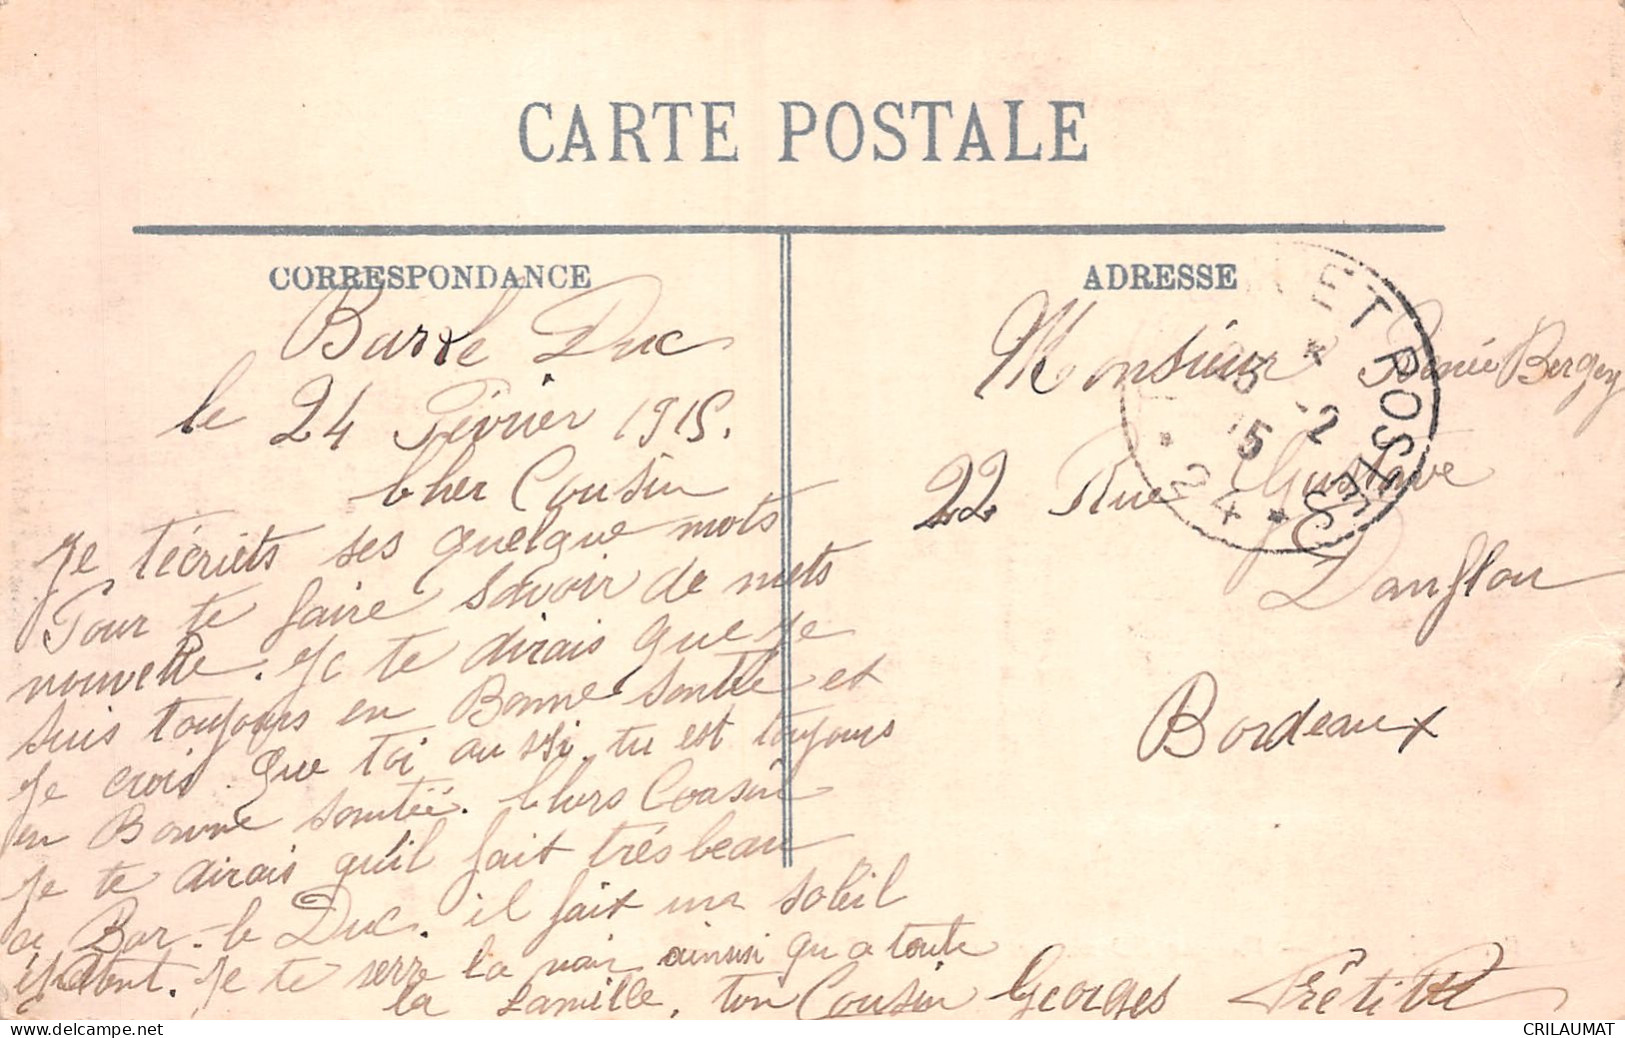 CARTE POSTALE
CORRESPONDANCE
ADRESSE
Bar le Duc
le 24 Février 1915.
Cher Cousin
Je técriets ses quelque mots
Pour te faire savoir de mets
nouvelle. Je te dirais que je
suis toujours en Bonne santée et
Je crois que toi aussi tu est toujours
en Bonne santéé. Chers Cousin
Je te dirais qu'il fait trés beau
a Bar-le Duc. il fait un soleil
Je te serre la main ainsi qu a toute
la famille, ton Cousin Georges
Monsieur Renée Bergey
22 Rue Gustave
Danflou
Bordeaux
ET POSTES
25 -2
15
24
CRILAUMAT